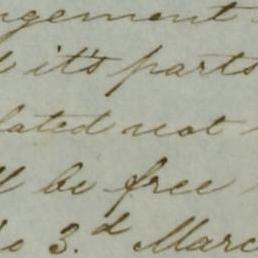 ngement
it's parts
lated not
be free
3.d Marc